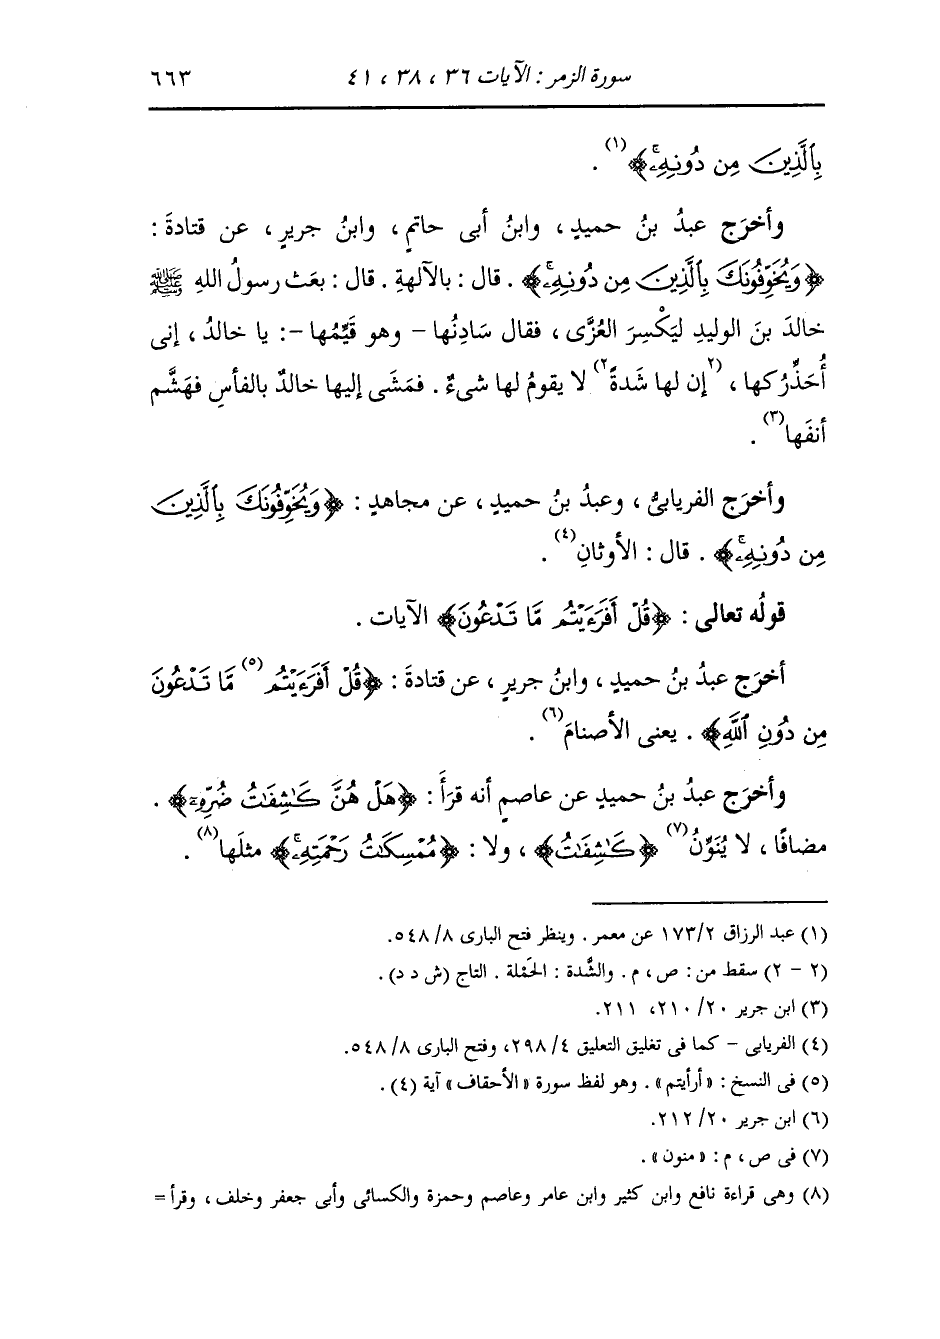 سورة الزمر : الآيات ٣٦ ، ٣٨ ، ٤١ ٦٦٣
بِالَّذِينَ مِن دُونِهِۦۚ﴾(١) .
وأخرَج عبدُ بنُ حميدٍ ، وابنُ أبى حاتمٍ ، وابنُ جريرٍ ، عن قتادةَ :
﴿وَيُخَوِّفُونَكَ بِالَّذِينَ مِن دُونِهِۦۚ﴾ . قال : بالآلهةِ . قال : بعَث رسولُ اللهِ ﷺ
خالدَ بنَ الوليدِ ليَكْسِرَ العُزَّى ، فقال سَادِنُها – وهو قَيِّمُها –: يا خالدُ ، إنى
أُحَذِّرُكها ، (٢إن لها شَدةً٢) لا يقومُ لها شىءٌ . فمَشَى إليها خالدٌ بالفأسِ فهَشَّم
أنفَها(٣) .
وأخرَج الفريابىُّ ، وعبدُ بنُ حميدٍ ، عن مجاهدٍ : ﴿وَيُخَوِّفُونَكَ بِالَّذِينَ
مِن دُونِهِۦۚ﴾ . قال : الأوثانِ(٤) .
قولُه تعالى : ﴿قُلْ أَفَرَءَيْتُم مَّا تَدْعُونَ﴾ الآيات .
أخرَج عبدُ بنُ حميدٍ ، وابنُ جريرٍ ، عن قتادةَ : ﴿قُلْ أَفَرَءَيْتُم(٥) مَّا تَدْعُونَ
مِن دُونِ ٱللَّهِ﴾ . يعنى الأصنامَ(٦) .
وأخرَج عبدُ بنُ حميدٍ عن عاصمٍ أنه قرَأَ : ﴿هَلْ هُنَّ كَٰشِفَٰتُ ضُرِّهِۦٓ﴾ .
مضافًا ، لا يُنَوِّنُ(٧) ﴿كَٰشِفَٰتُ﴾ ، ولا : ﴿مُمْسِكَٰتُ رَحْمَتِهِۦۚ﴾ مثلَها(٨) .
(١) عبد الرزاق ١٧٣/٢ عن معمر . وينظر فتح البارى ٨/ ٥٤٨.
(٢ – ٢) سقط من : ص ، م . والشَّدة : الحَمْلة . التاج (ش د د) .
(٣) ابن جرير ٢٠/ ٢١٠، ٢١١.
(٤) الفريابى – كما فى تغليق التعليق ٤/ ٢٩٨، وفتح البارى ٨/ ٥٤٨.
(٥) فى النسخ : «أرأيتم» . وهو لفظ سورة «الأحقاف» آية (٤) .
(٦) ابن جرير ٢٠/ ٢١٢.
(٧) فى ص ، م : «منون» .
(٨) وهى قراءة نافع وابن كثير وابن عامر وعاصم وحمزة والكسائى وأبى جعفر وخلف ، وقرأ =